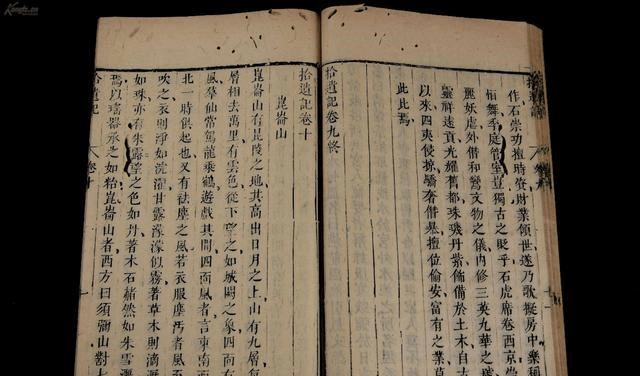 Kongfz.cn
作石崇功擅時資財業傾世遂乃歌擬房中樂稱
恒舞季庭管室豈獨古之貶乎石虎席卷西京崇
麗妖虐外僭和鸞文物之儀內修三英九華之
靈祥遠貢光耀舊都珠璣丹紫飾備於土木自
以來四夷侵掠驕奢僭暴擅位偷安富有之業
此比焉
拾遺記卷九終
拾遺記卷十
崑崙山
崑崙山有昆陵之地其高出日月之上山有九層
層相去萬里有雲色從下望之如城闕之象四面有
風羣仙常駕龍乘鶴遊戲其間四面風者言東南
北一時俱起也又有祛塵之風若衣服塵汚者風至
吹之衣則淨如浣濯甘露濛濛似霧著草木則滴
如珠亦有朱露望之色如丹著木石赭然如朱雪
焉以瑤器承之如粭崑崙山者西方曰須彌山對七
拾遺記
卷十